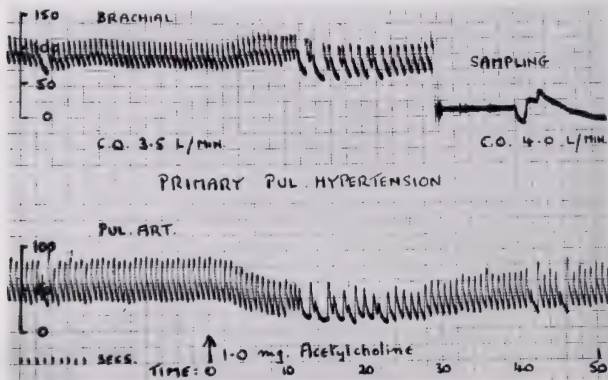 150
BRACHIAL
100
50
0
SAMPLING
C.O. 3.5 L/MIN.
C.O. 4.0 L/MIN.
PRIMARY PUL. HYPERTENSION
PUL. ART.
100
0
SECS.
1.0 mg. Acetylcholine
TIME: 0 10 20 30 40 50